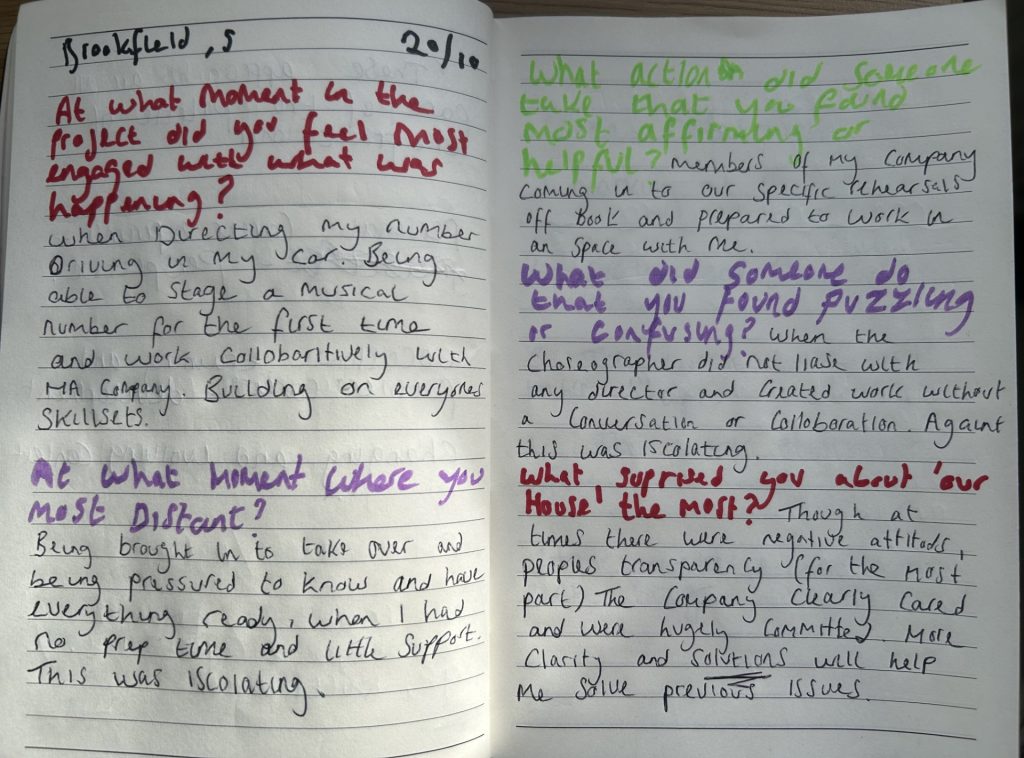 Brookfield, S 20/10
At what moment in the
project did you feel most
engaged with what was
happening?
when Directing my number
Driving in my car. Being
able to stage a musical
number for the first time
and work collobaritively with
MA Company. Building on everyones
Skillsets.
At what moment where you
most Distant?
Being brought in to take over and
being pressured to know and have
everything ready, when I had
no prep time and little support.
This was iscolating.
What action did someone
take that you found
most affirming or
helpful? members of my company
coming in to our specific rehearsals
off book and prepared to work in
an space with me.
What did someone do
that you found puzzling
or confusing? When the
choreographer did not liase with
any director and created work without
a conversation or colloboration. Again
this was iscolating.
What suprised you about 'our
House' the most? Though at
times there were negative attitods,
peoples transparency (for the most
part) The company clearly cared
and were hugely committed. More
clarity and solutions will help
me solve previous issues.